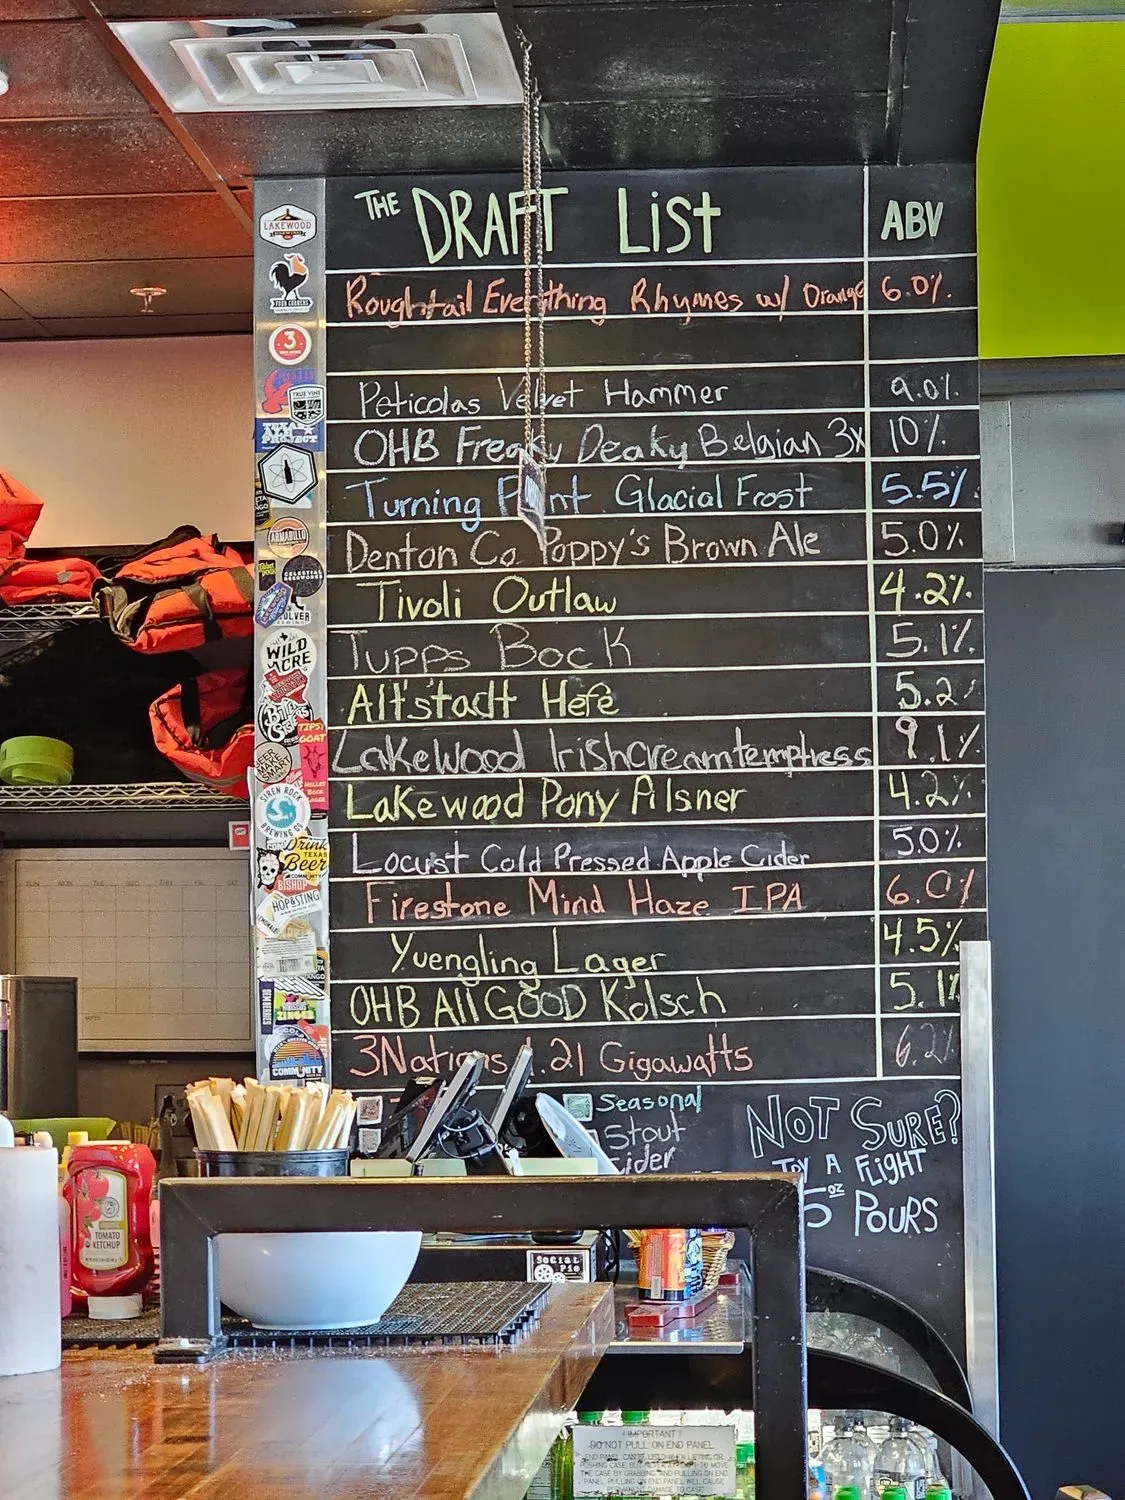 THE DRAFT LIST ABV
Roughtail Everything Rhymes w/ Orange 6.0%
Peticolas Velvet Hammer 9.0%
OHB Freaky Deaky Belgian 3x 10%
Turning Point Glacial Frost 5.5%
Denton Co. Poppy's Brown Ale 5.0%
Tivoli Outlaw 4.2%
Tupps Bock 5.1%
Alt'stadt Hefe 5.2
Lakewood Irishcreamtemptress 9.1%
Lakewood Pony Pilsner 4.2%
Locust Cold Pressed Apple Cider 5.0%
Firestone Mind Haze IPA 6.0%
Yuengling Lager 4.5%
OHB All GOOD Kolsch 5.1%
3Nations 1.21 Gigawatts 6.2%
Seasonal
Stout
Cider
NOT SURE?
TRY A FLIGHT
5oz POURS
LAKEWOOD
FOUR CORNERS
3
TRUE VINE
TEXAS
ALE
PROJECT
ARMADILLO
CELESTIAL
BEERWORKS
WILD
ACRE
TIPSY
GOAT
BEER
MAKE
SMART
SIREN ROCK
BREWING CO
Drink
TEXAS
Beer
COMMUNITY
BISHOP
HOP & STING
COMMUNITY
SUN MON TUE WED THU FRI SAT
TOMATO
KETCHUP
Social
Pie
! IMPORTANT !
DO NOT PULL ON END PANEL